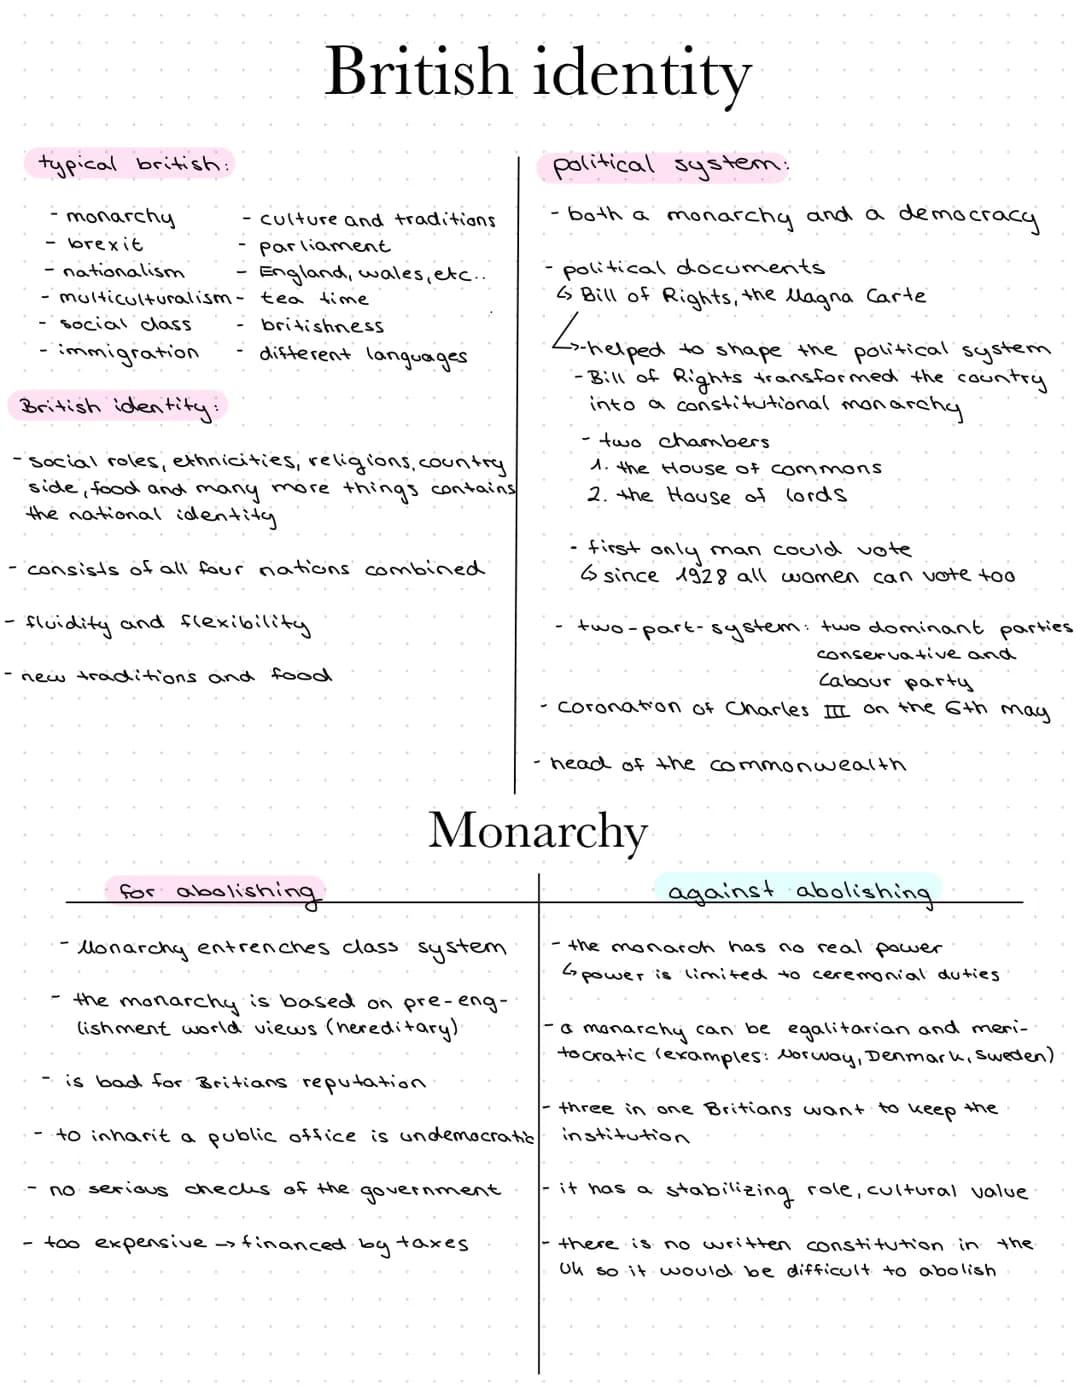 British identity
typical british:
- monarchy
- brexit
- nationalism
- multiculturalism
- social class
- immigration
- culture and traditions
- parliament
- England, wales, etc..
- tea time
- britishness
- different languages
British identity:
- social roles, ethnicities, religions, country
side, food and many more things contains
the national identity
- consists of all four nations combined
- fluidity and flexibility
- new traditions and food
political system:
- both a monarchy and a democracy
- political documents
↳ Bill of Rights, the Magna Carte
↳ - helped to shape the political system
- Bill of Rights transformed the country
into a constitutional monarchy
- two chambers
1. the House of commons
2. the House of lords
- first only man could vote
↳ since 1928 all women can vote too
- two-part-system: two dominant parties
conservative and
Labour party
- coronation of Charles III on the 6th may
- head of the commonwealth
Monarchy
for abolishing
- Monarchy entrenches class system
- the monarchy is based on pre-eng-
lishment world views (hereditary)
- is bad for Britians reputation
- to inharit a public office is undemocratic
- no serious checks of the government
- too expensive → financed by taxes
against abolishing
- the monarch has no real power
↳ power is limited to ceremonial duties
- a monarchy can be egalitarian and meri-
tocratic (examples: Norway, Denmark, Sweden)
- three in one Britians want to keep the
institution
- it has a stabilizing role, cultural value
- there is no written constitution in the
Uk so it would be difficult to abolish